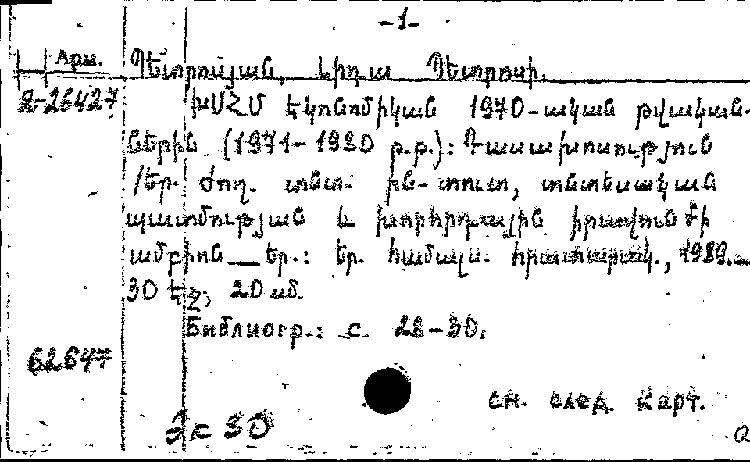 -1-
Арм.
Պետրոսյան, Լիդա Պետրոսի.
2-26427
ԽՍՀՄ էկոնոմիկան 1970-ական թվական-
ներին (1971-1980 թ.թ.): Դասախոսություն
/Եր. ժող. տնտ. ին-տուտ, տնտեսական
պատմության և խորհրդային իրավունքի
ամբիոն._ Եր.: Եր. համալս. հրատարակ., 1989._
30 էջ; 20 սմ.
Библиогр.: с. 28-30.
62647
см. след. карт.
Эс 30